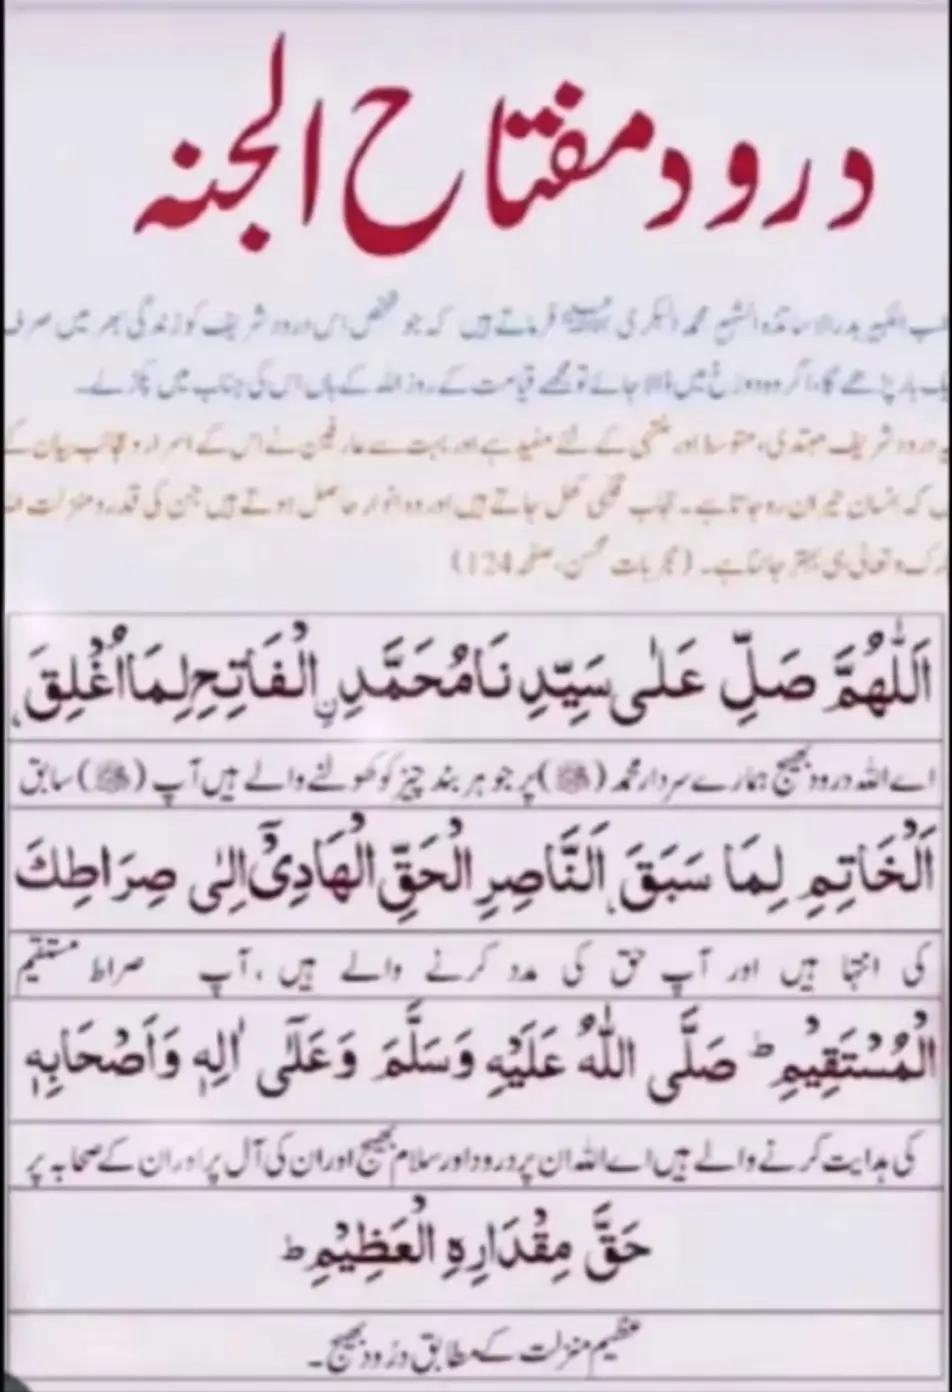 درود مفتاح الجنہ
الکبیر بدر الاساتذہ الشیخ محمد البکری فرماتے ہیں کہ جو شخص اس درود شریف کو زندگی بھر میں صرف
بار پڑھے گا، اگر وہ دوزخ میں ڈالا جائے تو مجھے قیامت کے روز اللہ کے ہاں اس کی جناب میں پکڑ لے۔
درود شریف مبتدی، متوسط اور منتہی کے لئے مفید ہے اور بہت سے عارفین نے اس کے اسرار و عجائب بیان کئے
کہ انسان حیران رہ جاتا ہے۔ حجاب قلبی کھل جاتے ہیں اور وہ انوار حاصل ہوتے ہیں جن کی قدر و منزلت
و تعالیٰ ہی بہتر جانتا ہے۔ (مجربات محسن، صفحہ 124)
اَللّٰهُمَّ صَلِّ عَلٰى سَيِّدِنَا مُحَمَّدِ نِ الْفَاتِحِ لِمَا اُغْلِقَ
اے اللہ درود بھیج ہمارے سردار محمد (ﷺ) پر جو ہر بند چیز کو کھولنے والے ہیں آپ (ﷺ) سابق
اَلْخَاتِمِ لِمَا سَبَقَ اَلنَّاصِرِ الْحَقِّ الْهَادِيْ اِلٰى صِرَاطِكَ
کی انتہا ہیں اور آپ حق کی مدد کرنے والے ہیں، آپ صراط مستقیم
الْمُسْتَقِيْمِ ؕ صَلَّى اللّٰهُ عَلَيْهِ وَسَلَّمَ وَعَلٰٓى اٰلِهٖ وَاَصْحَابِهٖ
کی ہدایت کرنے والے ہیں اے اللہ ان پر درود اور سلام بھیج اور ان کی آل پر اور ان کے صحابہ پر
حَقَّ مِقْدَارِهِ الْعَظِيْمِ ؕ
عظیم منزلت کے مطابق درُود بھیج۔